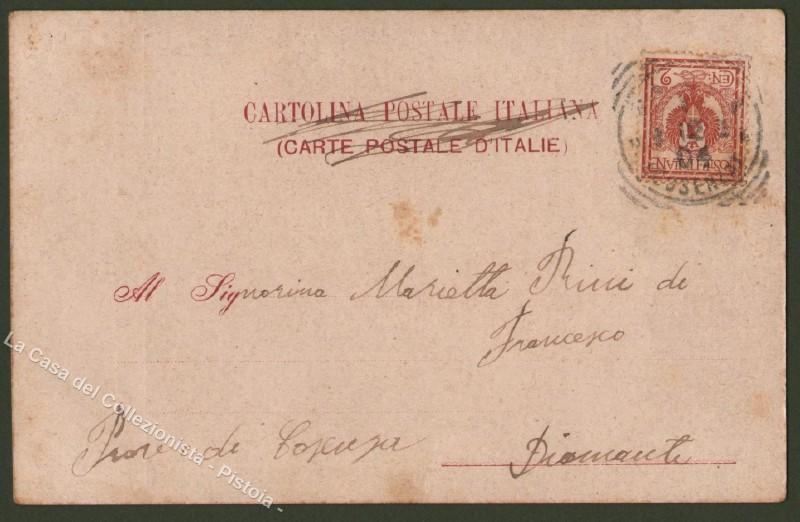 CARTOLINA POSTALE ITALIANA
(CARTE POSTALE D'ITALIE)
2
EN:
POSTE ITALIANE
COSENZA
Al Signorina Marietta Ricci di
Francesco
Prov. di Cosenza
Diamante
La Casa del Collezionista - Pistoia -